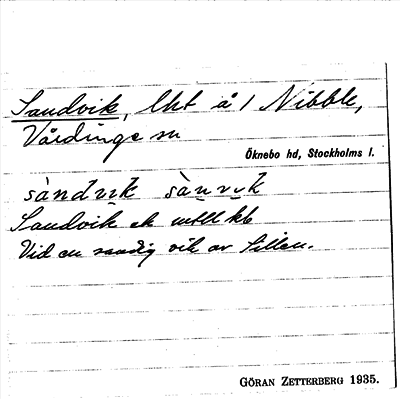 Sandvik, lht å 1 Nibble,
Vårdinge sn
Öknebo hd, Stockholms l.
sàndvɪk sàn vɪk
Sandvik ek
Vid en sandig vik av Sillen.
GÖRAN ZETTERBERG 1935.